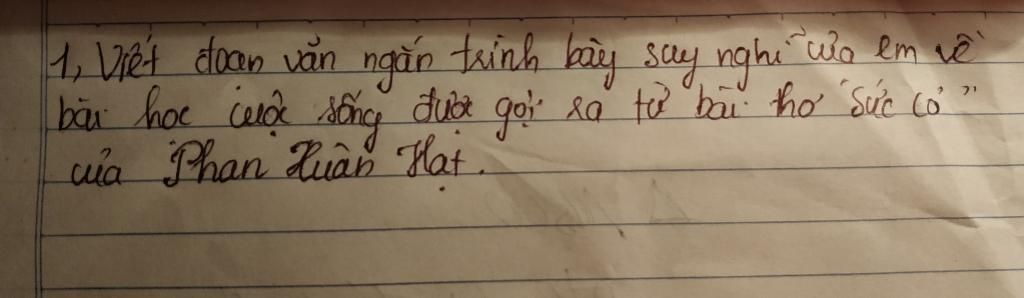 1, Viết đoạn văn ngắn trình bày suy nghĩ của em về
bài học cuộc sống được gợi ra từ bài thơ "Sức cỏ"
của Phan Xuân Hạt.